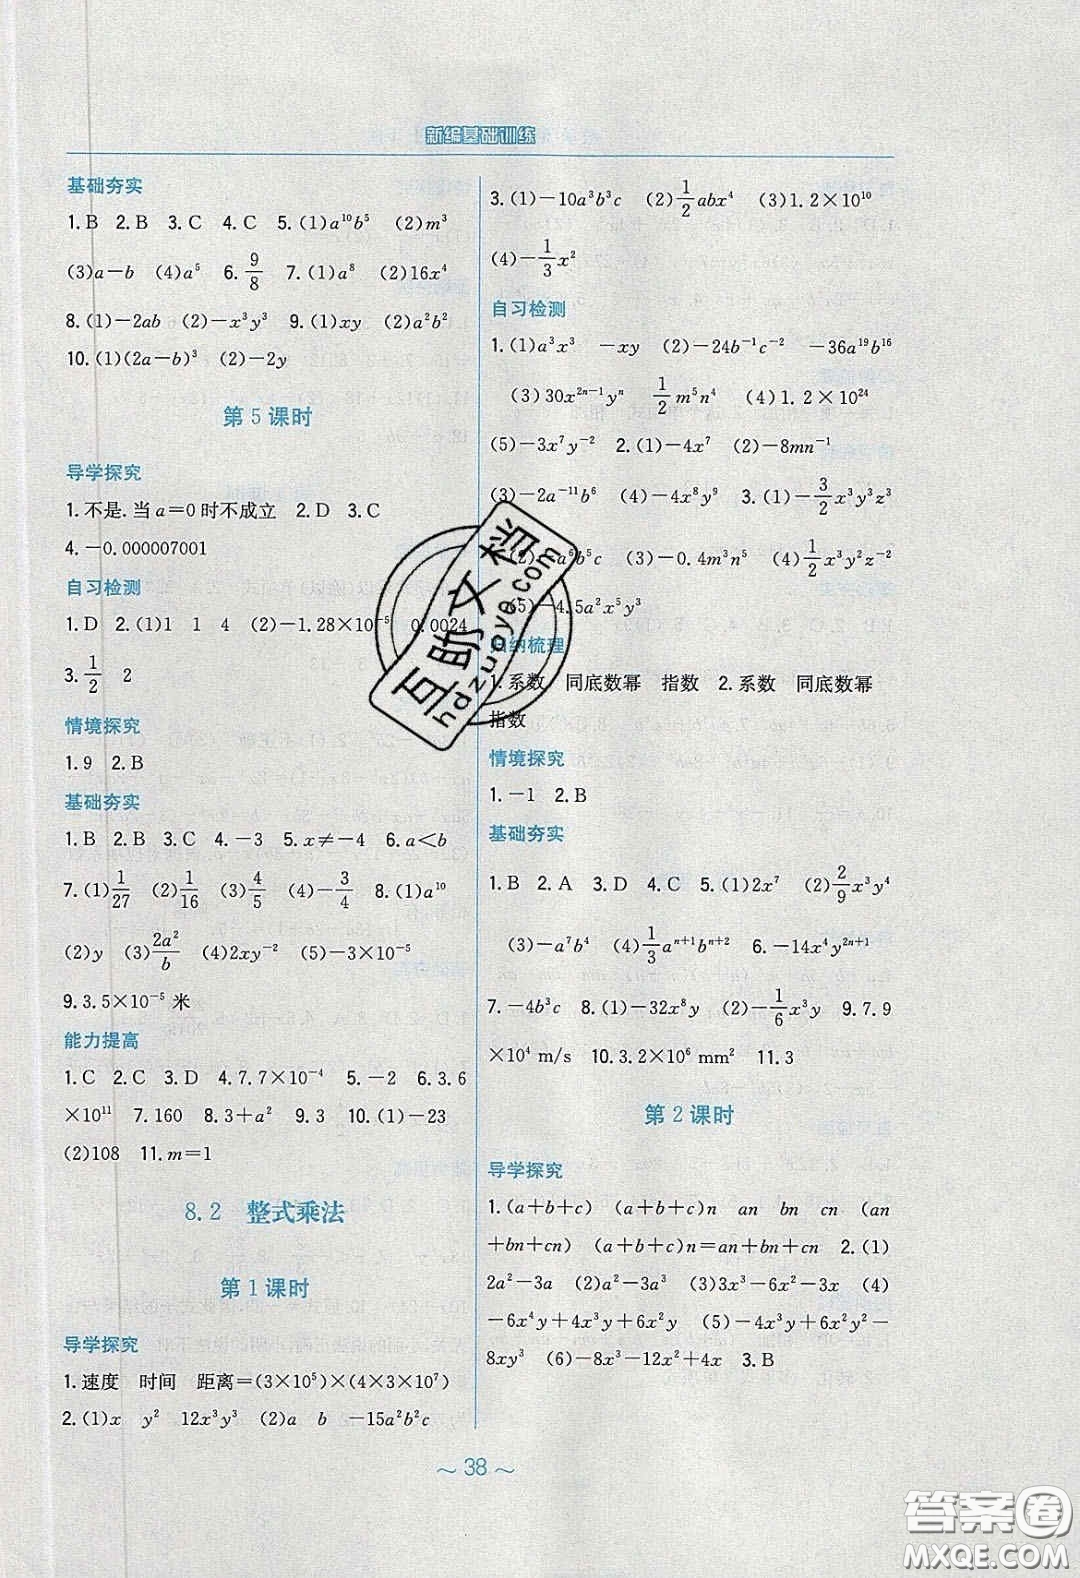 新编基础训练
基础夯实
1. B 2. B 3. C 4. C 5. (1)a¹⁰b⁵ (2)m³
(3)a−b (4)a⁵ 6. 9/8 7. (1)a⁸ (2)16x⁴
8. (1)−2ab (2)−x³y³ 9. (1)xy (2)a²b²
10. (1)(2a−b)³ (2)−2y
第 5 课时
导学探究
1. 不是. 当 a=0 时不成立 2. D 3. C
4. −0.000007001
自习检测
1. D 2. (1)1 1 4 (2)−1.28×10⁻⁵ 0.0024
3. 1/2 2
情境探究
1. 9 2. B
基础夯实
1. B 2. B 3. C 4. −3 5. x≠−4 6. a<b
7. (1)1/27 (2)1/16 (3)4/5 (4)−3/4 8. (1)a¹⁰
(2)y (3)2a²/b (4)2xy⁻² (5)−3×10⁻⁵
9. 3.5×10⁻⁵ 米
能力提高
1. C 2. C 3. D 4. 7.7×10⁻⁴ 5. −2 6. 3.6
×10¹¹ 7. 160 8. 3+a² 9. 3 10. (1)−23
(2)108 11. m=1
8.2 整式乘法
第 1 课时
导学探究
1. 速度 时间 距离=(3×10⁵)×(4×3×10⁷)
2. (1)x y² 12x³y³ (2)a b −15a²b²c
3. (1)−10a³b³c (2)1/2abx⁴ (3)1.2×10¹⁰
(4)−1/3x²
自习检测
1. (1)a³x³ −xy (2)−24b⁻¹c⁻² −36a¹⁹b¹⁶
(3)30x²ⁿ⁻¹yⁿ 1/2m⁵n⁴ (4)1.2×10²⁴
(5)−3x⁷y⁻² 2. (1)−4x⁷ (2)−8mn⁻¹
(3)−2a⁻¹¹b⁶ (4)−4x⁸y⁹ 3. (1)−3/2x³y³z³
a⁶b⁵c (3)−0.4m³n⁵ (4)1/2x³y²z⁻²
(5)−4.5a²x⁵y³
归纳梳理
1. 系数 同底数幂 指数 2. 系数 同底数幂
指数
情境探究
1. −1 2. B
基础夯实
1. B 2. A 3. D 4. C 5. (1)2x⁷ (2)2/9x³y⁴
(3)−a⁷b⁴ (4)1/3aⁿ⁺¹bⁿ⁺² 6. −14x⁴y²ⁿ⁺¹
7. −4b³c 8. (1)−32x⁸y (2)−1/6x³y 9. 7.9
×10⁴ m/s 10. 3.2×10⁶ mm² 11. 3
第 2 课时
导学探究
1. (a+b+c) (a+b+c)n an bn cn (an
+bn+cn) (a+b+c)n=an+bn+cn 2. (1)
2a²−3a (2)a²−3a (3)3x³−6x²−3x (4)
−6x⁴y+4x³y+6x²y (5)−4x³y+6x²y²−
8xy³ (6)−8x³−12x²+4x 3. B
～ 38 ～
互助文档
hdzuoye.com
答案圈
MXQE.COM